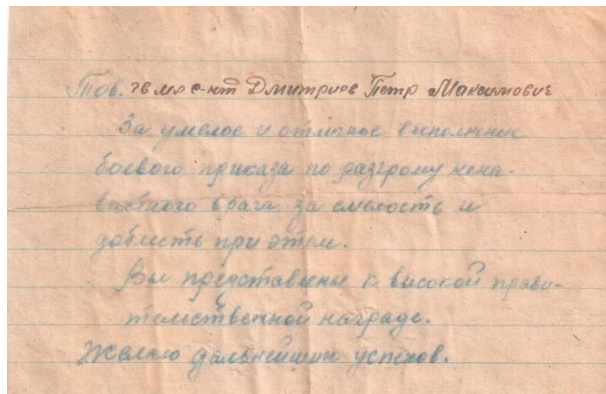 Тов. гв мл с-нт Дмитриев Петр Максимович
За умелое и отличное выполнение
боевого приказа по разгрому нена-
вистного врага за смелость и
доблесть при этом.
Вы представлены к высокой прави-
тельственной награде.
Желаю дальнейших успехов.